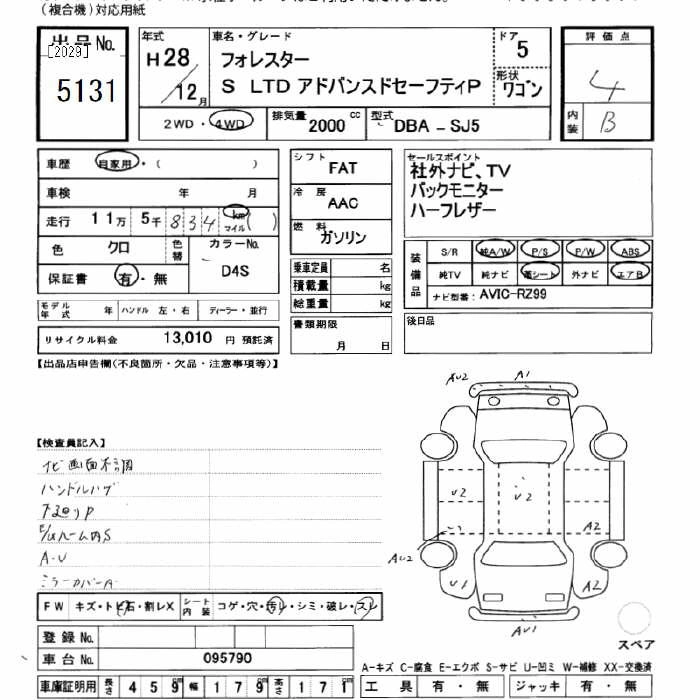 (複合機)対応用紙
出品No.
[2029]
5131
年式
H28
12月
車名・グレード
フォレスター
S LTD アドバンスドセーフティP
ドア
5
形状
ワゴン
評価点
4
内装
B
2WD・4WD
排気量 2000 cc
型式 DBA-SJ5
車歴 自家用・( )
車検 年 月
走行 11万 5千 834 km マイル ( )
色 クロ 色替
カラーNo. D4S
保証書 有・無
シフト FAT
冷房 AAC
燃料 ガソリン
乗車定員 名
積載量 kg
総重量 kg
セールスポイント
社外ナビ、TV
バックモニター
ハーフレザー
装備品
S/R 純A/W P/S P/W ABS
純TV 純ナビ 革シート 外ナビ エアB
ナビ型番: AVIC-RZ99
モデル年式 年 ハンドル 左・右 ディーラー・並行
リサイクル料金 13,010 円 預託済
書類期限
月 日
後日品
【出品店申告欄(不良箇所・欠品・注意事項等)】
AU2 A1
【検査員記入】
ナビ画面不調
ハンドルハゲ
下回りP
E/Gルーム内S
A・U
ミラーカバーA
U2 U2
A2
AU2
U1 A2
AU1
スペア
FW キズ・トビ石・割レX
シート内装 コゲ・穴・汚レ・シミ・破レ・スレ
登録No.
車台No. 095790
車庫証明用 長さ 459cm 幅 179cm 高さ 171cm
A-キズ C-腐食 E-エクボ S-サビ U-凹ミ W-補修 XX-交換済
工具 有・無 ジャッキ 有・無